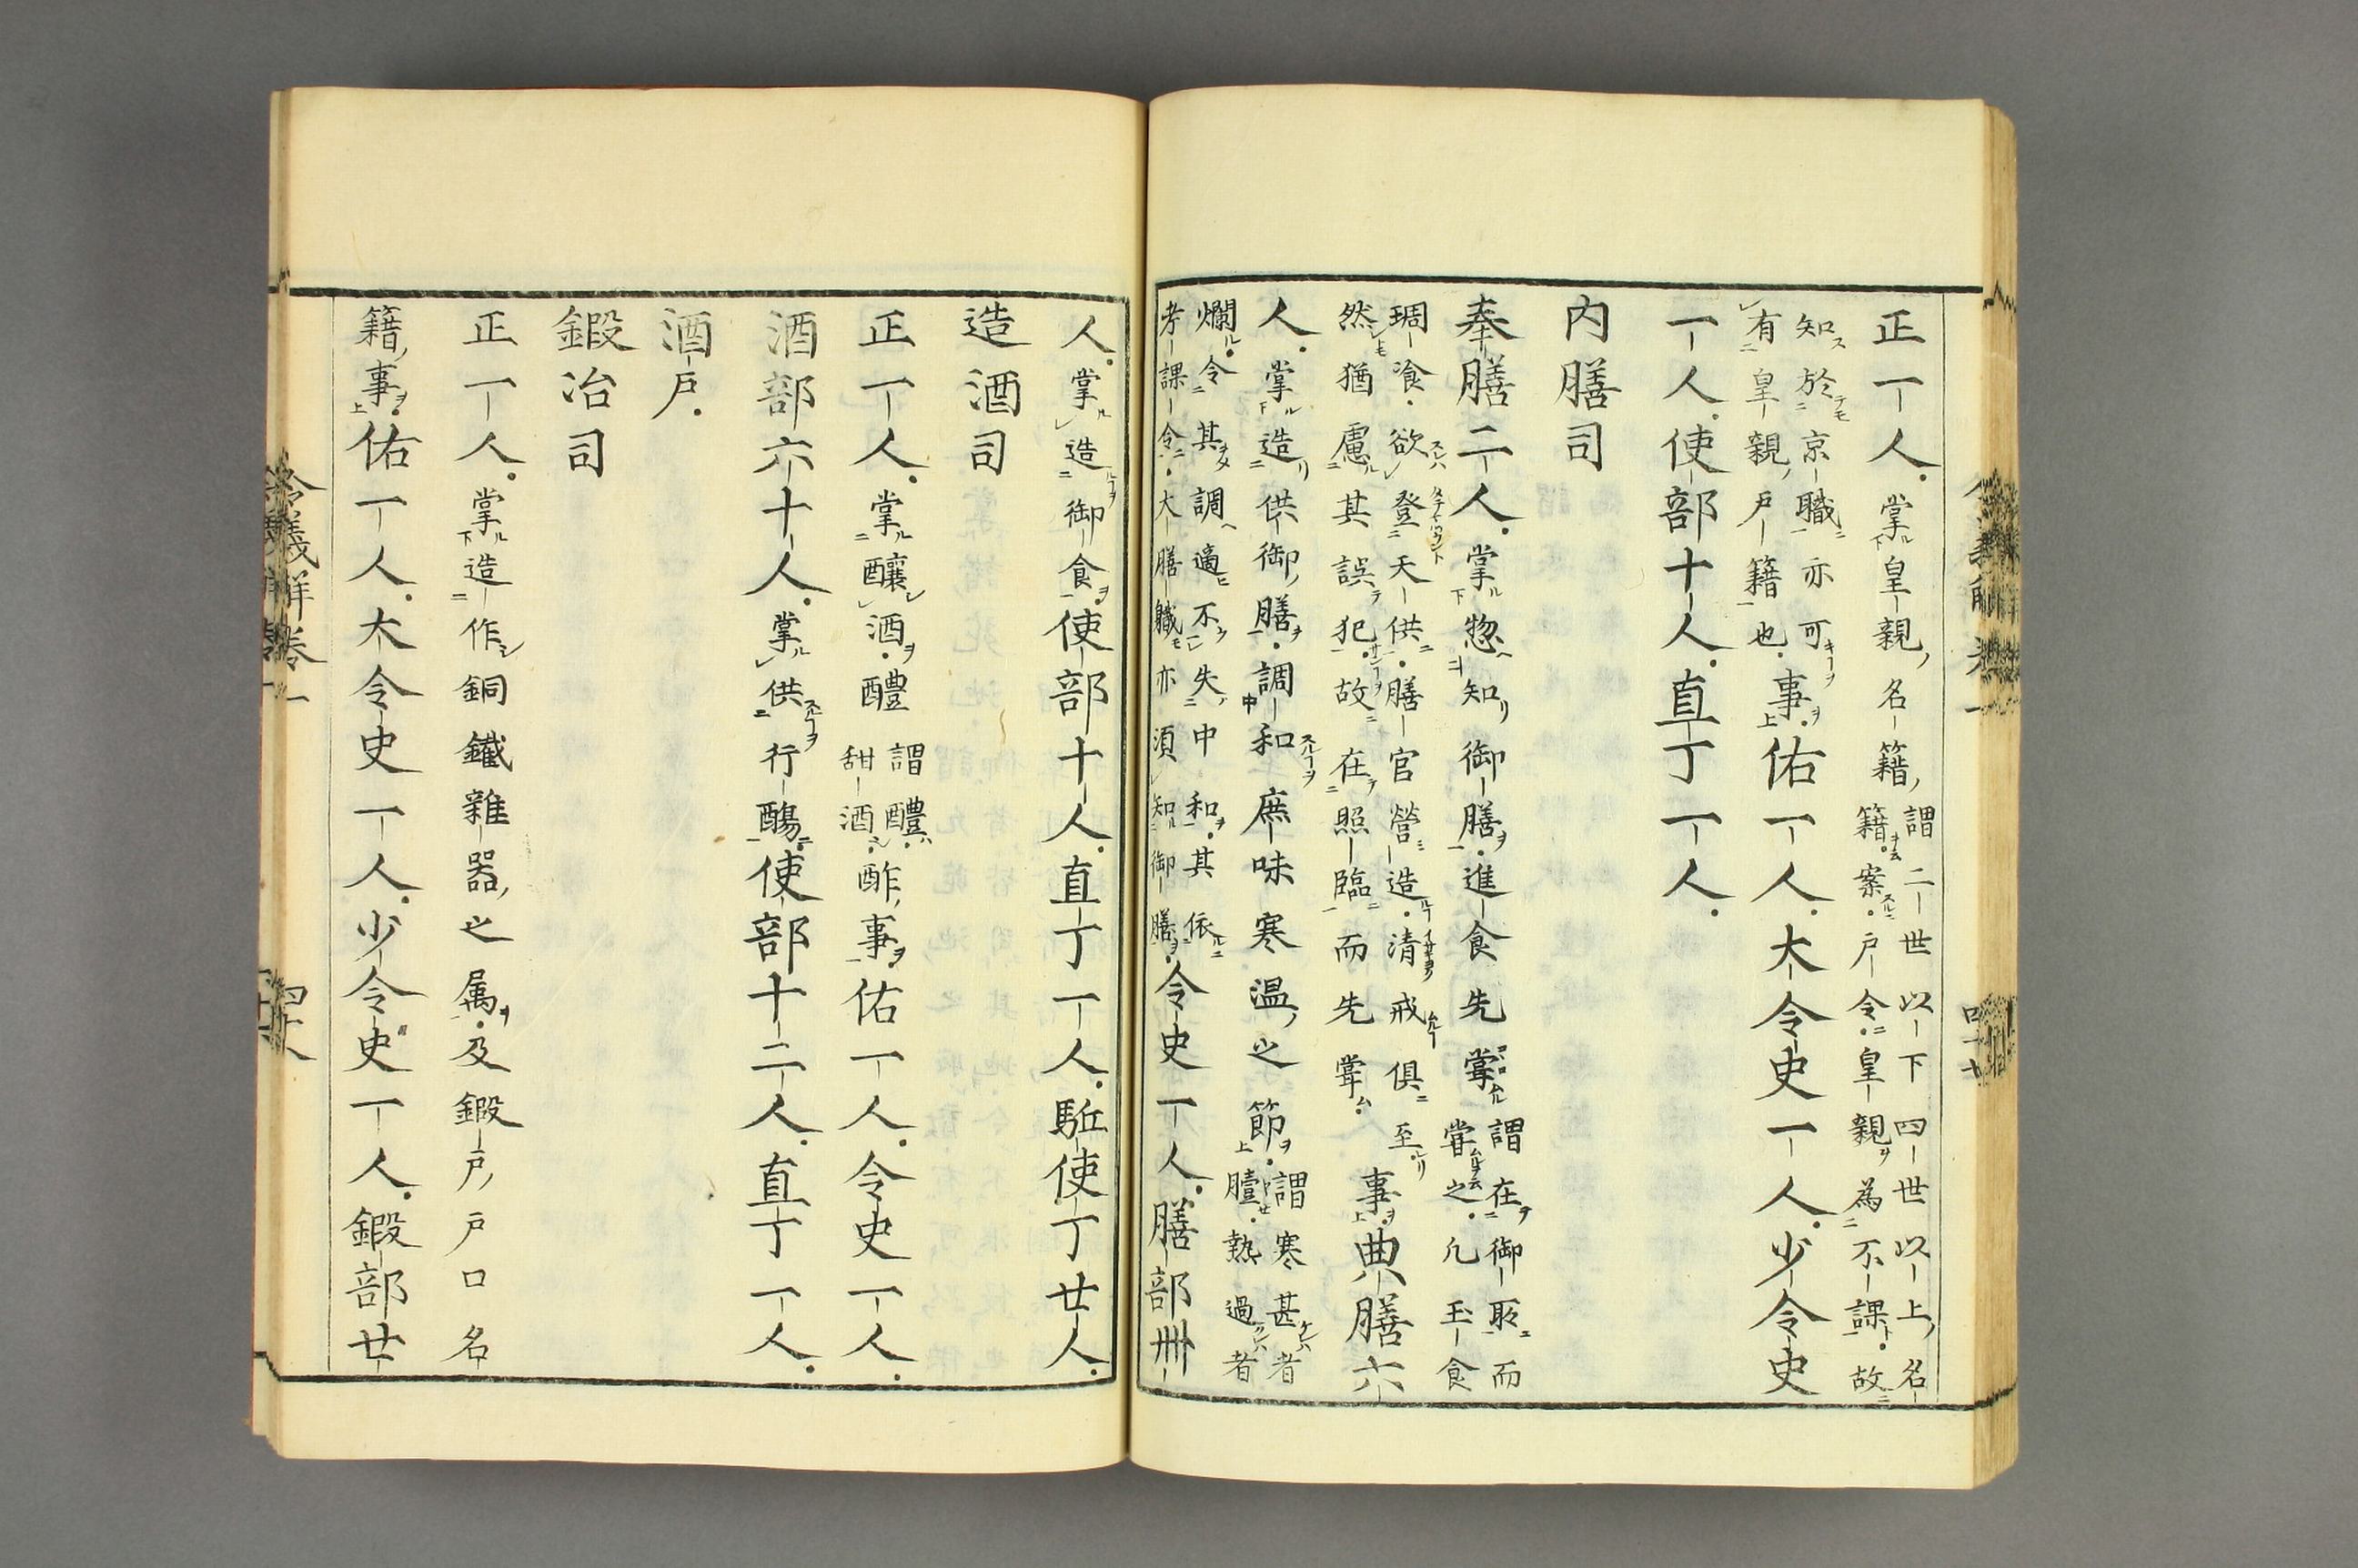 正一人。掌皇親名籍謂二世以下四世以上名籍案戸令皇親為不課故
知於京職亦可有皇親戸籍也事佑一人大令史一人少令史
一人使部十人直丁一人
内膳司
奉膳二人掌惣知御膳進食先甞謂在御所而甞之凢王食
琱飡欲登天供膳官營造清戒俱至然猶慮其誤犯故在照臨而先甞事典膳六
人掌造供御膳調和庶味寒温之節謂寒甚者膻熱過者
爛令其調適不失中和其依考課令大膳職亦須知御膳令史一人膳部卌
人掌造御食使部十人直丁一人駈使丁廿人
造酒司
正一人掌釀酒醴謂醴甜酒酢事佑一人令史一人
酒部六十人掌供行觴使部十二人直丁一人
酒戸
鍛冶司
正一人掌造作銅鐵雜器之属及鍛戸戸口名
籍事佑一人大令史一人少令史一人鍛部廿
令義解卷一
四十八